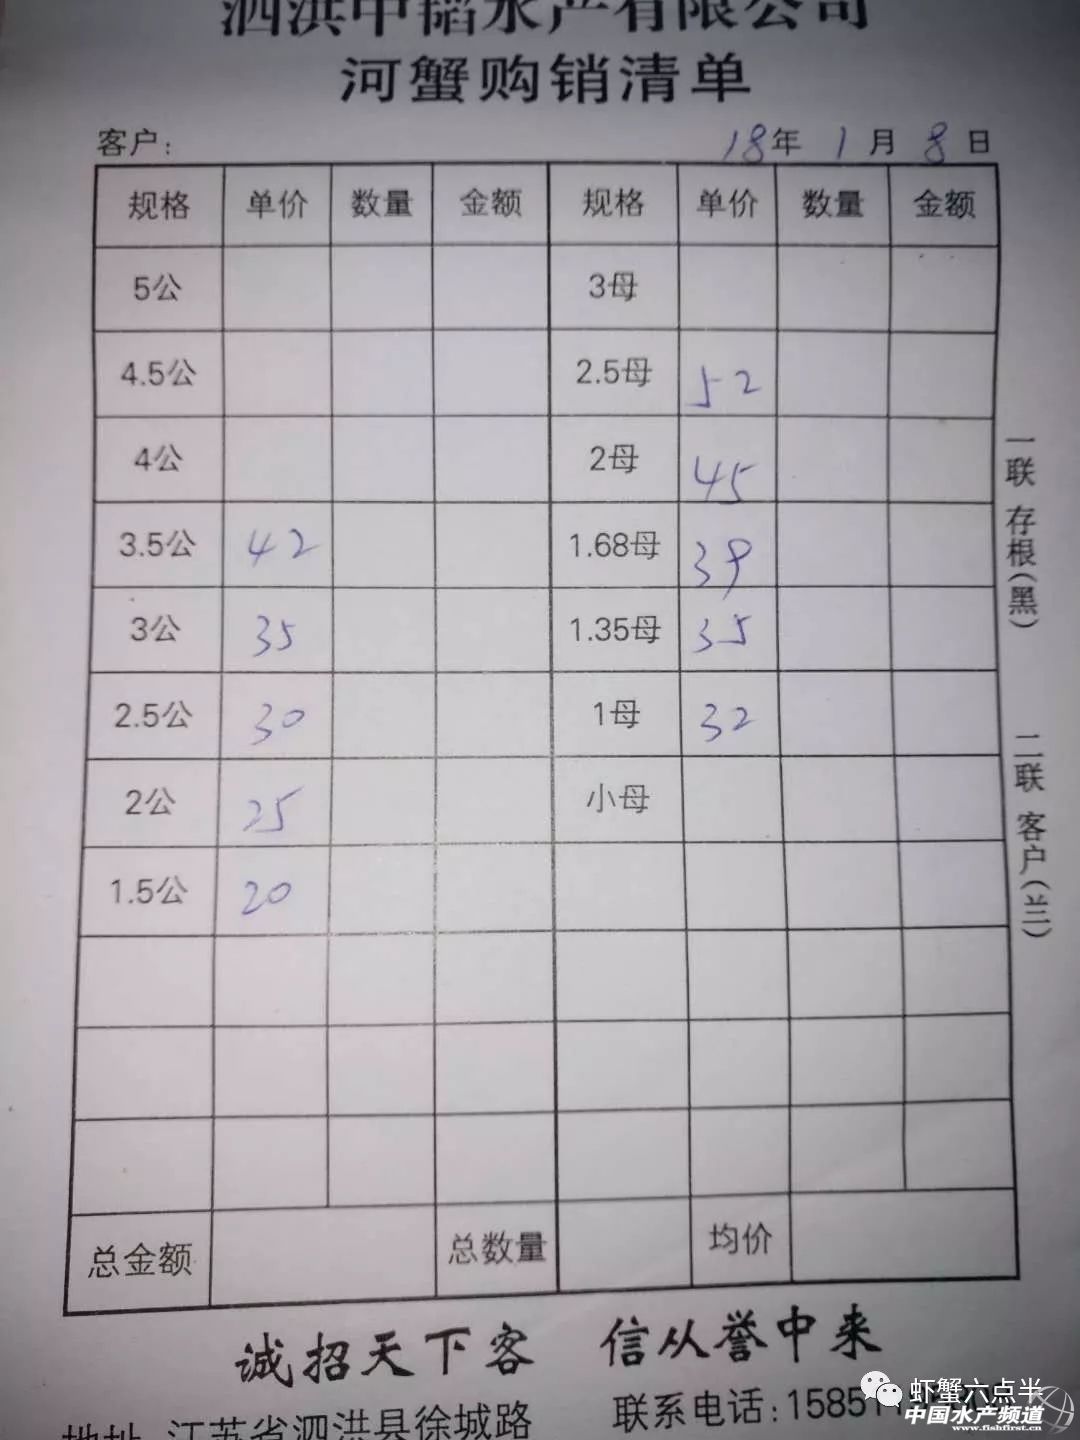 泗洪中韬水产有限公司
河蟹购销清单
客户: 18年 1月 8日
规格 单价 数量 金额 规格 单价 数量 金额
5公 3母
4.5公 2.5母 52
4公 2母 45
3.5公 42 1.68母 39
3公 35 1.35母 35
2.5公 30 1母 32
2公 25 小母
1.5公 20
总金额 总数量 均价
一联 存根(黑)
二联 客户(兰)
诚招天下客 信从誉中来
地址 江苏省泗洪县徐城路 联系电话:15851
虾蟹六点半
中国水产频道
www.fishfirst.cn